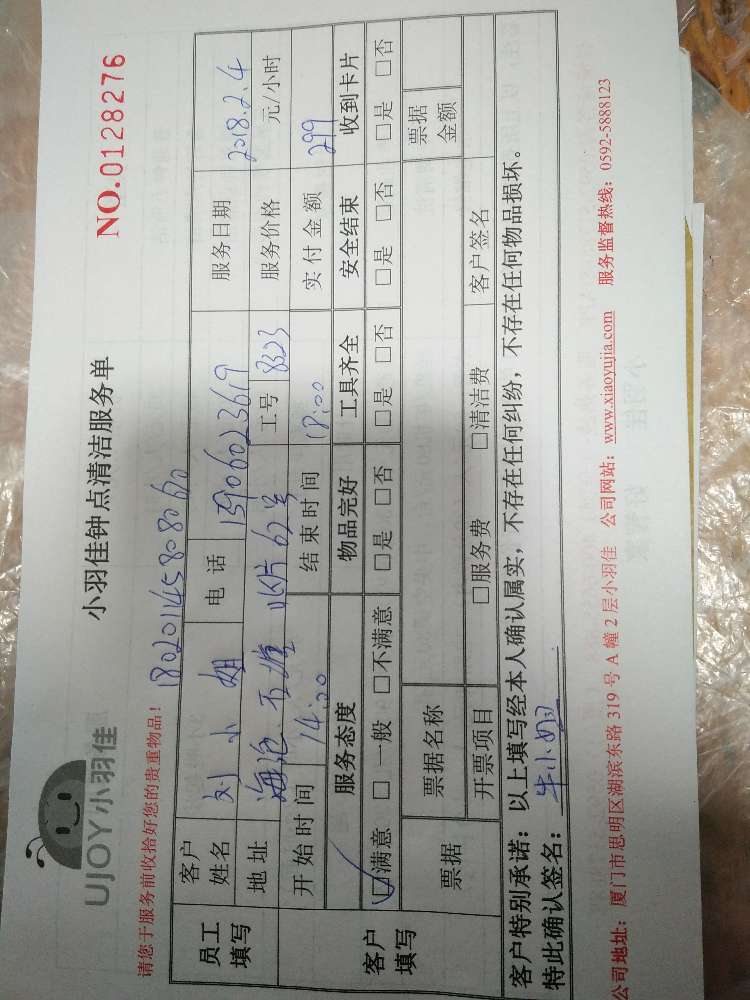 UJOY小羽佳
小羽佳钟点清洁服务单
NO.0128276
请您于服务前收拾好您的贵重物品！
18020145808060
员工填写
客户姓名 刘小姐 电话 15960236,9 服务日期 2018.2.4
地址 海沧 62号 工号 8323 服务价格 元/小时
开始时间 14:00 结束时间 18:00 实付金额 299
客户填写
服务态度 物品完好 工具齐全 安全结束 收到卡片
☑满意 □一般 □不满意 □是 □否 □是 □否 □是 □否 □是 □否
票据 票据名称 票据金额
开票项目 □服务费 □清洁费 客户签名
客户特别承诺：以上填写经本人确认属实，不存在任何纠纷，不存在任何物品损坏。
特此确认签名：牛小姐
公司地址：厦门市思明区湖滨东路319号A幢2层小羽佳 公司网站：www.xiaoyujia.com 服务监督热线：0592-5888123